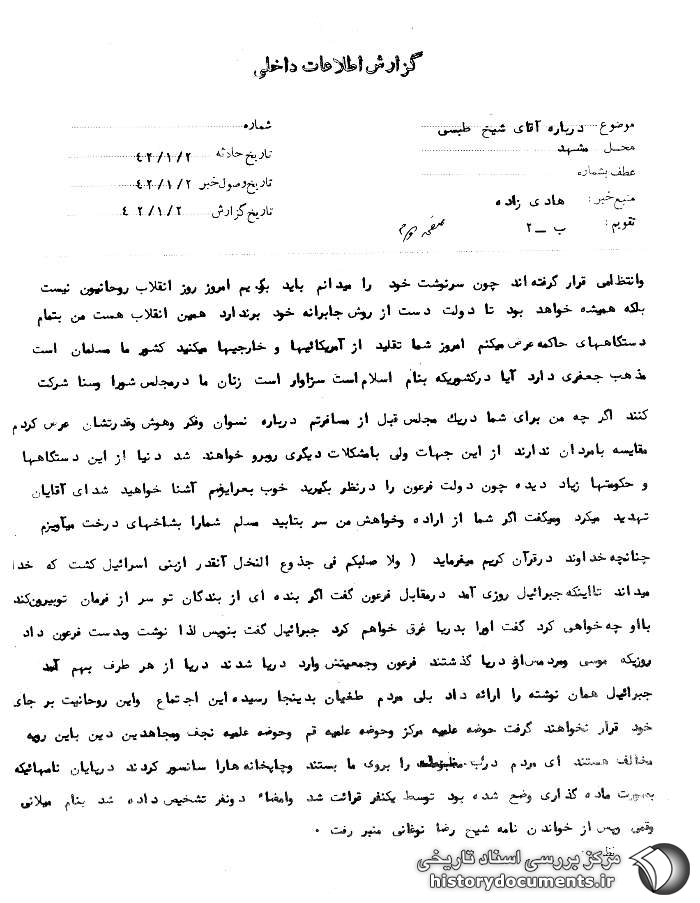 گزارش اطلاعات داخلی
موضوع درباره آقای شیخ طبسی
محل مشهد
عطف بشماره
منبع خبر: هادی زاده
تقویم: ب ــ ٢
شماره
تاریخ حادثه ٤٢/١/٢
تاریخ وصول خبر ٤٢/١/٢
تاریخ گزارش ٤٢/١/٢
صفحه
وانتظامی قرار گرفته اند چون سرنوشت خود را میدانم باید بگویم امروز روز انقلاب روحانیون نیست
بلکه همیشه خواهد بود تا دولت دست از روش جابرانه خود برندارد همین انقلاب هست من بتمام
دستگاههای حاکمه عرض میکنم امروز شما تقلید از آمریکائیها و خارجیها میکنید کشور ما مسلمان است
مذهب جعفری دارد آیا در کشوریکه بنام اسلام است سزاوار است زنان ما در مجلس شورا وسنا شرکت
کنند اگر چه من برای شما دریك مجلس قبل از مسافرتم درباره نسوان وفکر وهوش وقدرتشان عرض کردم
مقایسه بامردان ندارند از این جهات ولی بامشکلات دیگری روبرو خواهند شد دنیا از این دستگاهها
و حکومتها زیاد دیده چون دولت فرعون را درنظر بگیرید خوب بعرایضم آشنا خواهید شد ای آقایان
تهدید میکرد ومیگفت اگر شما از اراده وخواهش من سر بتابید مسلم شمارا بشاخهای درخت میآویزم
چنانچه خداوند در قرآن کریم میفرماید ( ولا صلبکم فی جذوع النخل آنقدر ازبنی اسرائیل کشت که خدا
میداند تا اینکه جبرائیل روزی آمد درمقابل فرعون گفت اگر بنده ای از بندگان تو سر از فرمان توبیرون کند
بااو چه خواهی کرد گفت اورا بدریا غرق خواهم کرد جبرائیل گفت بنویس لذا نوشت وبدست فرعون داد
روزیکه موسی ومردمش از دریا گذشتند فرعون وجمعیتش وارد دریا شدند دریا از هر طرف بهم آمد
جبرائیل همان نوشته را ارائه داد بلی مردم طغیان بدینجا رسیده این اجتماع واین روحانیت بر جای
خود قرار نخواهند گرفت حوضه علمیه مرکز وحوضه علمیه قم وحوضه علمیه نجف ومجاهدین دین باین رویه
مخالف هستند ای مردم درب را بروی ما بستند وچاپخانه هارا سانسور کردند درپایان نامهائیکه
بصورت ماده گذاری وضع شده بود توسط یکنفر قرائت شد وامضاء دونفر تشخیص داده شد بنام میلانی
وقمی وپس از خواندن نامه شیخ رضا نوغانی منبر رفت .
مرکز بررسی اسناد تاریخی
historydocuments.ir